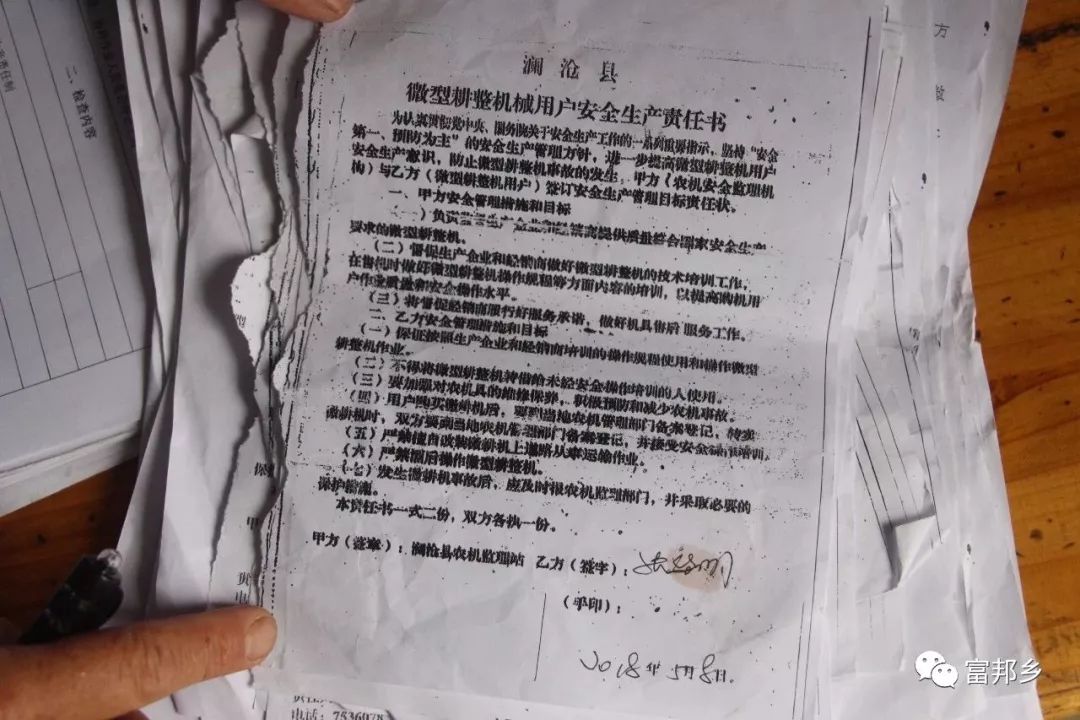 澜沧县
微型耕整机械用户安全生产责任书
为认真贯彻党中央、国务院关于安全生产工作的一系列重要指示，坚持“安全
第一、预防为主”的安全生产管理方针，进一步提高微型耕整机用户
安全生产意识，防止微型耕整机事故的发生，甲方（农机安全监理机
构）与乙方（微型耕整机用户）签订安全生产管理目标责任状。
一、甲方安全管理措施和目标
（一）负责 提供质量符合国家安全生产
要求的微型耕整机。
（二）督促生产企业和经销商做好微型耕整机的技术培训工作，
在售机时做好微型耕整机操作规程等方面内容的培训，以提高购机用
户作业质量和安全操作水平。
（三）将督促经销商履行好服务承诺，做好机具售后服务工作。
二、乙方安全管理措施和目标
（一）保证按照生产企业和经销商培训的操作规程使用和操作微型
耕整机作业。
（二）不得将微型耕整机转借给未经安全操作培训的人使用。
（三）要加强对农机具的维修保养，积极预防和减少农机事故。
（四）用户购买微耕机后，要到当地农机管理部门备案登记，转卖
微耕机时，双方要到当地农机管理部门备案登记，并接受安全 培训。
（五）严禁擅自改装微耕机上道路从事运输作业。
（六）严禁酒后操作微型耕整机。
（七）发生微耕机事故后，应及时报农机监理部门，并采取必要的
保护措施。
本责任书一式二份，双方各执一份。
甲方（签章）：澜沧县农机监理站 乙方（签字）：
（手印）：
2018年5月8日.
二、检查内容
方
甲
电话：7536078
富邦乡